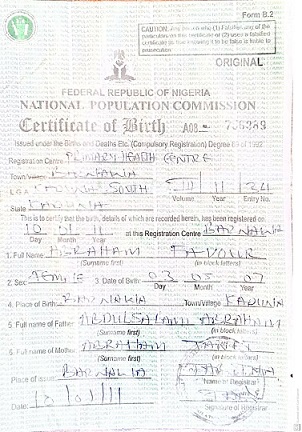 Form B.2
CAUTION: Any person who (1) Falsifies any of the
particulars on this certificate or (2) uses a falsified
certificate as true knowing it to be false is liable to
prosecution
ORIGINAL
FEDERAL REPUBLIC OF NIGERIA
NATIONAL POPULATION COMMISSION
Certificate of Birth
Issued under the Births and Deaths Etc. (Compulsory Registration)
Registration Centre PRIMARY HEALTH CENTRE
Town/Village BARNAWA
L.G.A KADUNA SOUTH
Volume Year Entry No.
State KADUNA
This is to certify that the birth, details of which are recorded herein, has been registered on
10 01 11 at this Registration Centre BARNAWA
Day Month Year
1. Full Name ABRAHAM FAVOUR
(Surname first) (in block letters)
2. Sex FEMALE 3. Date of Birth 03 05 07
Day Month Year
4. Place of Birth BARNAWA Town/Village KADUNA
5. Full name of Father ABDULSALAMI ABRAHAM
(Surname first) (in block letters)
6. Full name of Mother ABRAHAM
(Surname first) (in block letters)
Place of Issue BARNAWA
Name of Registrar
Date: 10/01/11
Signature of Registrar